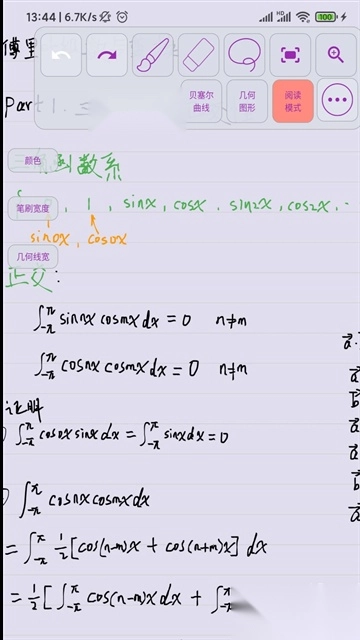 13:44 | 6.7K/s
HD
100
Part 1. 三
贝塞尔
曲线
几何
图形
阅读
模式
颜色
函数系
笔刷宽度
1, sinx, cosx, sin2x, cos2x, ·
sin0x, cos0x
几何线宽
正交:
∫_{-π}^{π} sin nx cos mx dx = 0 n≠m
∫_{-π}^{π} cos nx cos mx dx = 0 n≠m
证明
∫_{-π}^{π} cos0x sinx dx = ∫_{-π}^{π} sinx dx = 0
∫_{-π}^{π} cos nx cos mx dx
= ∫_{-π}^{π} 1/2 [cos(n-m)x + cos(n+m)x] dx
= 1/2 [∫_{-π}^{π} cos(n-m)x dx + ∫_{-π}^{π}